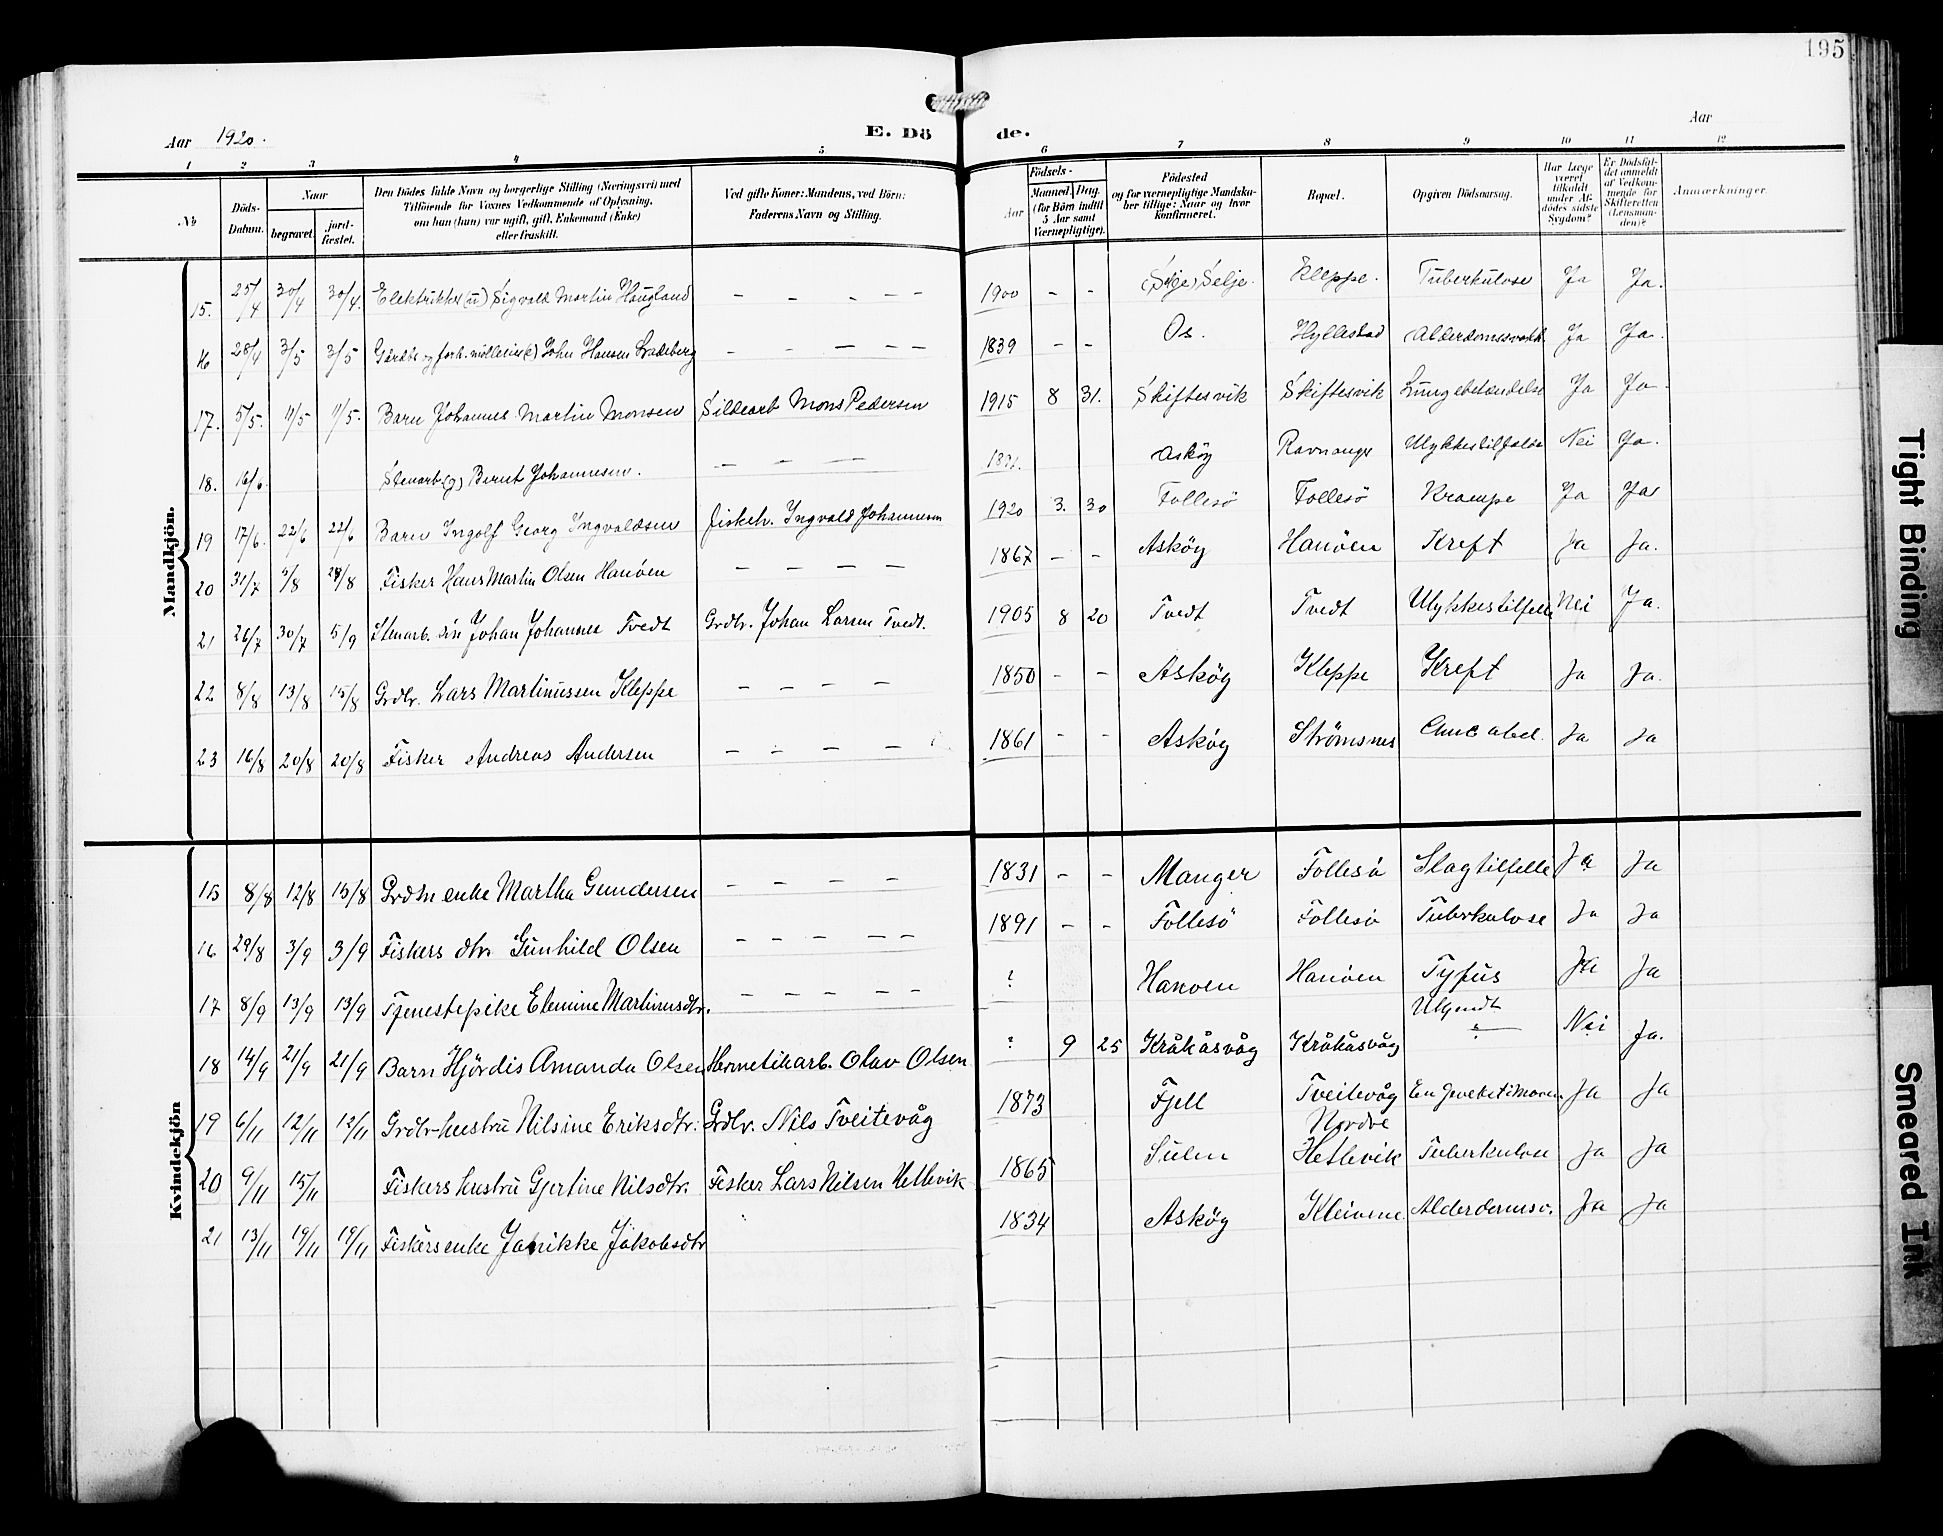 195
Aar 1920.
E. Dö de.
Aar
1 2 3 4 5 6 7 8 9 10 11 12
No
Döds-Datum.
Naar
begravet.
jord-fæstet.
Den Dödes fulde Navn og borgerlige Stilling (Næringsvei) med
Tilföiende for Voxnes Vedkommende af Oplysning,
om han (hun) var ugift, gift, Enkemand (Enke)
eller fraskilt.
Ved gifte Koner: Mandens, ved Börn:
Faderens Navn og Stilling.
Födsels-
Aar
Maaned. Dag.
(for Börn indtil
5 Aar samt
Værnepligtige).
Födested
og for værnepligtige Mandska-
ber tillige: Naar og hvor
konfirmeret.
Bopæl.
Opgiven Dödsaarsag.
Har Læge
været
tilkaldt
under Af-
dödes sidste
Sygdom?
Er Dödsfal-
det anmeldt
af Vedkom-
mende for
Skifteretten
(Lensman-
den)?
Anmærkninger.
Mandkjön.
15. 25/4 30/4 30/4. Elektriker (u) Sigvald Martin Haugland — — — — — 1900 — — Selje Kleppe. Tuberkulose Ja Ja.
16 28/4 3/5 3/5 John Hansen — — — — — 1839 — — Os. Hyllestad Alderdomssvakh. Ja Ja.
17. 5/5. 11/5 11/5. Barn Johannes Martin Monsen Sildearb Mons Pedersen 1915 8 31. Skiftesvik Skiftesvik Lungebetændelse Ja Ja.
18. 16/6. Stenarb (g) Bernt Johannesen. — — — — Askøy Ravnanger Ulykkestilfælde Nei Ja.
19 17/6. 22/6 22/6 Barn Ingolf Georg Ingvaldsen fiskeh. Ingvald Johannesen 1920 3. 30 Follesö Follesö Krampe Ja Ja
20 31/7 5/8 29/8 Fisker Hans Martin Olsen Hanöen — — — — 1867 — — Askøy Hanöen Kreft Ja Ja.
21 26/7 30/7 5/9 Stenarb. sön Johan Johannes Tvedt Grdbr. Johan Larsen Tvedt. 1905 8 20 Tvedt Tvedt Ulykkestilfelle Nei Ja.
22 8/8 13/8 15/8 Grdbr. Lars Martinussen Kleppe — — — — 1850 — — Askøy Kleppe Kreft Ja Ja.
23 16/8 20/8 20/8 Fisker Andreas Andersen — — — — 1861 — — Askøy Strömsnes Ja Ja
Kvindekjön
15 8/8 12/8 15/8 Grdbr enke Martha Gundersen — — — — 1831 — — Manger Follesö Slagtilfelle Ja Ja
16 29/8 3/9 3/9 Fiskers dtr. Gunhild Olsen — — — — — 1891 — — Follesö Follesö Tuberkulose Ja Ja
17 8/9 13/9 13/9 Tjenestepike Elemine Martinusdtr. — — — — — ? Hanöen Hanöen Tyfus Ja Ja
18 14/9 21/9 21/9 Barn Hjördis Amanda Olsen Hermetikarb. Olav Olsen ? 9 25 Kråkåsvåg Kråkåsvåg Ukjendt ? Nei Ja.
19 6/11 12/11 12/11 Grdbr-hustru Nilsine Eriksdtr. Grdbr. Nils Tveitevåg 1873 Fjell Tveitevåg Nordre Ja Ja
20 9/11 15/11 Fiskers hustru Gjertine Nilsdtr. Fisker Lars Nilsen Hetlevik 1865 Sulen Hetlevik Tuberkulose Ja Ja
21 13/11 19/11 19/11 Fiskers enke Janikke Jakobsdtr 1834 Askøy Kleivene. Alderdomssv. Ja Ja
Tight Binding
Smeared Ink